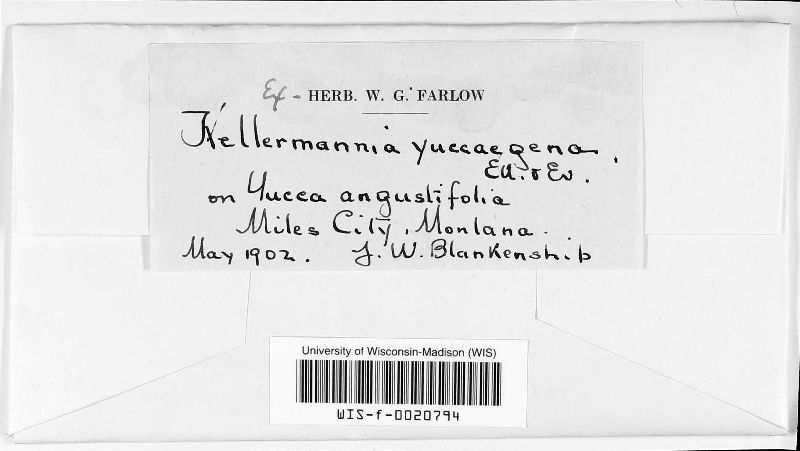 Ex - HERB. W. G. FARLOW
Kellermannia yuccaegena
Ell. & Ev.
on Yucca angustifolia
Miles City, Montana.
May 1902. J. W. Blankenship
University of Wisconsin-Madison (WIS)
WIS-f-0020794